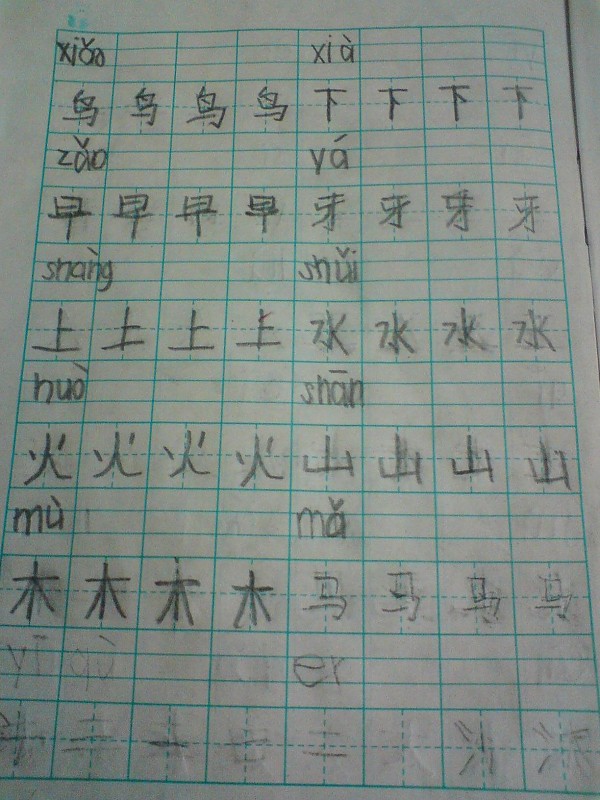 xiǎo xià
鸟 鸟 鸟 鸟 下 下 下 下
zǎo yá
早 早 早 早 牙 牙 牙 牙
shàng shǔi
上 上 上 上 水 水 水 水
huò shān
火 火 火 火 山 山 山 山
mù mǎ
木 木 木 木 马 马 马 马
er